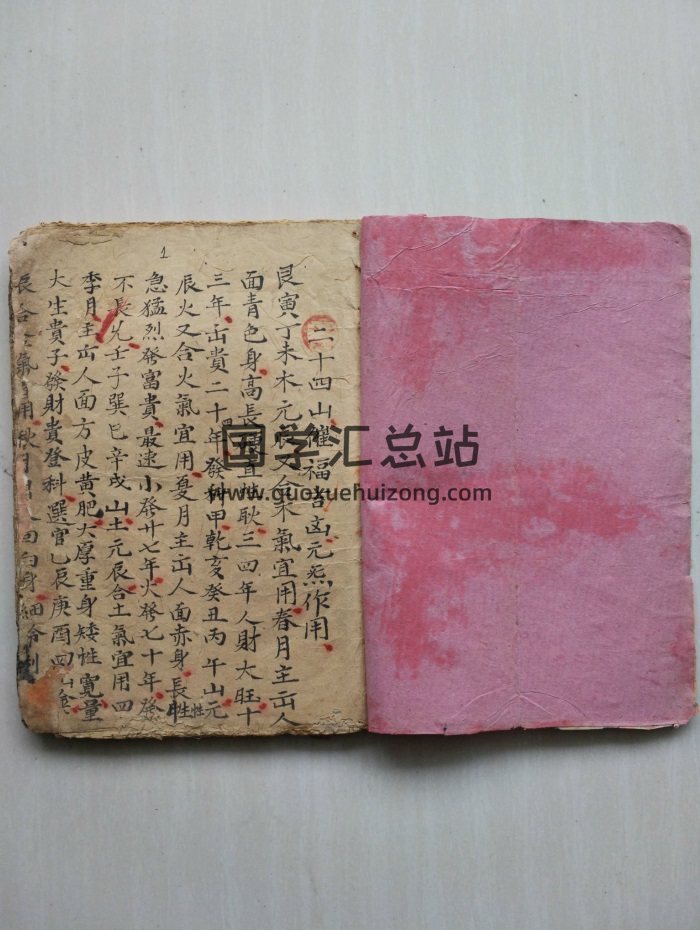 二十四山催福吉凶元炁作用
艮寅丁未木元辰又合木氣宜用春月主出人
面青色身高長 直性耿三四年人財大旺十
三年出貴二十四年發科甲乾亥癸丑丙午山元
辰火又合火氣宜用夏月主出人面赤身長性
急猛烈發富貴最速小發廿七年大發七十年發
不長久壬子巽巳辛戌山土元辰合土氣宜用四
季月主出人面方皮黃肥大厚重身矮性寬量
大生貴子發財貴登科選官乙辰庚酉四山金
辰合 氣宜用秋月出人面白身細
1
国学汇总站
www.guoxuehuizong.com